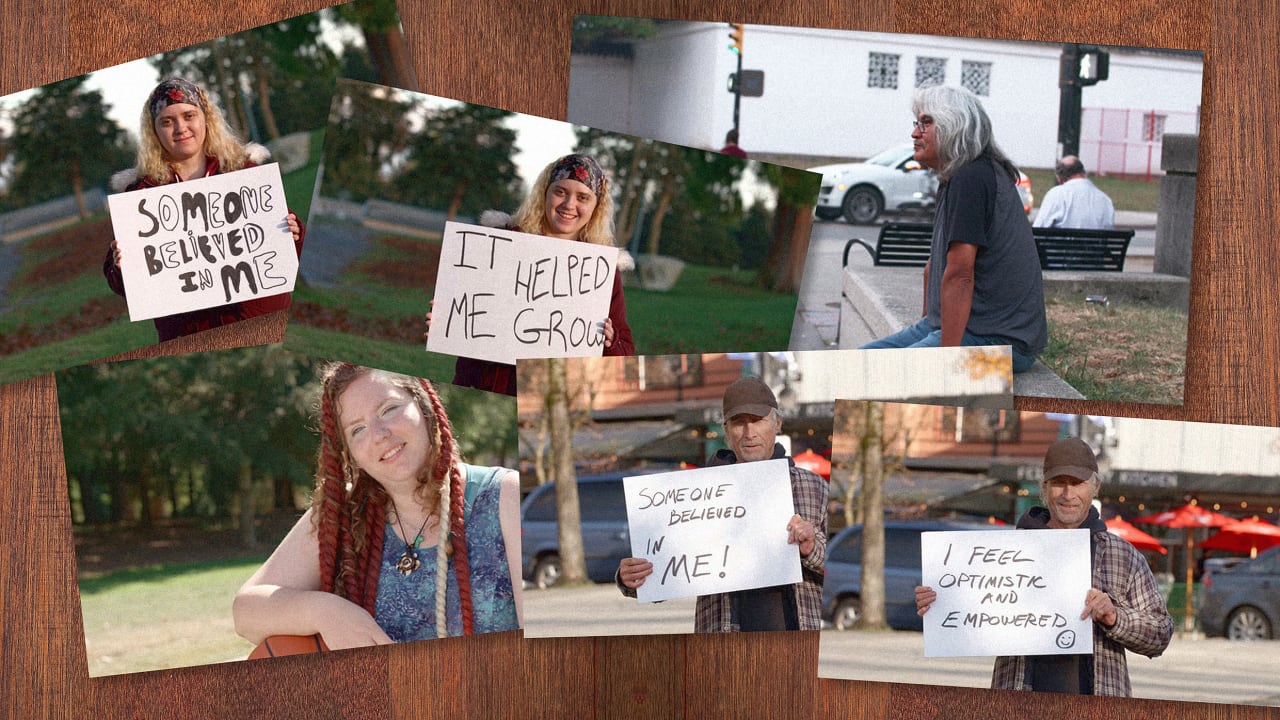 SOMEONE
BELiEVED
IN ME
IT HELPED
ME GROW
SOMEONE
BELIEVED
IN
ME!
I FEEL
OPTIMISTIC
AND
EMPOWERED